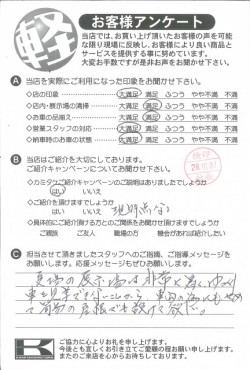 軽
お客様アンケート
当店では、お買い上げ頂いたお客様の声を可能
な限り現場に反映し、お客様により良い商品と
サービスを提供する事に努めています。
大変お手数ですが是非お声をお聞かせ下さい。
A 当店を実際にご利用になった印象をお聞かせ下さい。
◇店の印象 大満足 満足 ふつう やや不満 不満
◇店内・展示場の清掃 大満足 満足 ふつう やや不満 不満
◇お車の品揃え 大満足 満足 ふつう やや不満 不満
◇営業スタッフの対応 大満足 満足 ふつう やや不満 不満
◇納車時のお車の状態 大満足 満足 ふつう やや不満 不満
B 当店はご紹介を大切にしております。
ご紹介キャンペーンについてお聞かせ下さい。
◇カミタケご紹介キャンペーンのご説明はありましたでしょうか
はい いいえ
◇ご紹介を頂けますでしょうか
はい いいえ
◇具体的にご紹介頂ける方とのご関係をお聞かせ頂けますでしょうか
ご親族 ご友人 職場の方 機会があれば紹介したい
C 担当させて頂きましたスタッフへのご指摘、ご指導メッセージを
お願いします。応援メッセージもぜひお願いします。
真夏の展示場は非常に暑い中
ご協力に心よりお礼を申し上げます。
今後とも宜しくお引き立てご愛顧の程お願い申し上げます。
またのご来店を心からお待ちしております。